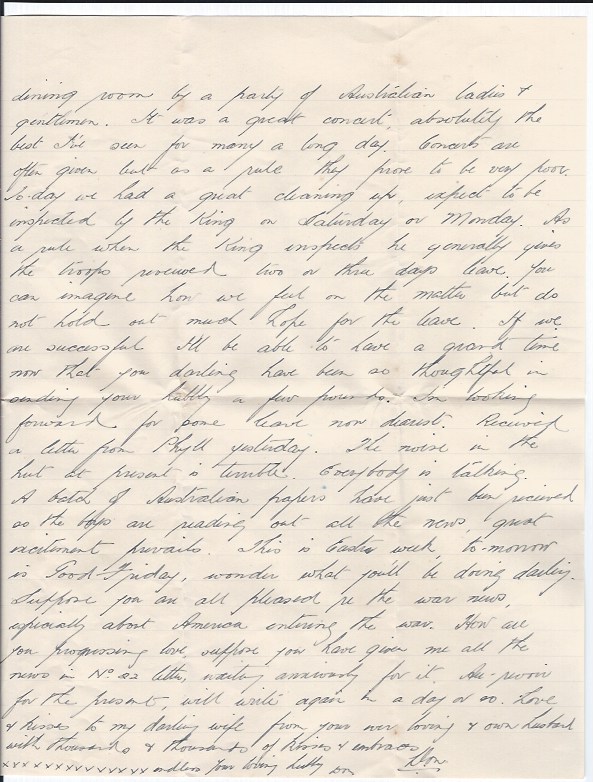 dining room by a party of Australian ladies &
gentlemen. It was a great concert, absolutely the
best I've seen for many a long day. Concerts are
often given but as a rule they prove to be very poor.
To-day we had a great cleaning up, expect to be
inspected by the King on Saturday or Monday. As
a rule when the King inspects he generally gives
the troops reviewed two or three days leave. You
can imagine how we feel on the matter but do
not hold out much hope for the leave. If we
are successful I'll be able to have a grand time
now that you darling have been so thoughtful in
sending your hubby a few pounds. I'm looking
forward for some leave now dearest. Received
a letter from Phyll yesterday. The noise in the
hut at present is terrible. Everybody is talking.
A batch of Australian papers have just been recieved
so the boys are reading out all the news, great
excitement prevails. This is Easter week, to-morrow
is Good-Friday, wonder what you'll be doing darling.
Suppose you are all pleased re the war news,
especially about America entering the war. How are
you progressing love, suppose you have given me all the
news in No 22 letter, waiting anxiously for it. Au-revoir
for the present, will write again in a day or so. Love
& kisses to my darling wife from your ever loving & own husband
with thousands & thousands of kisses & embraces Don
xxxxxxxxxxxxxx endless your loving hubby Don